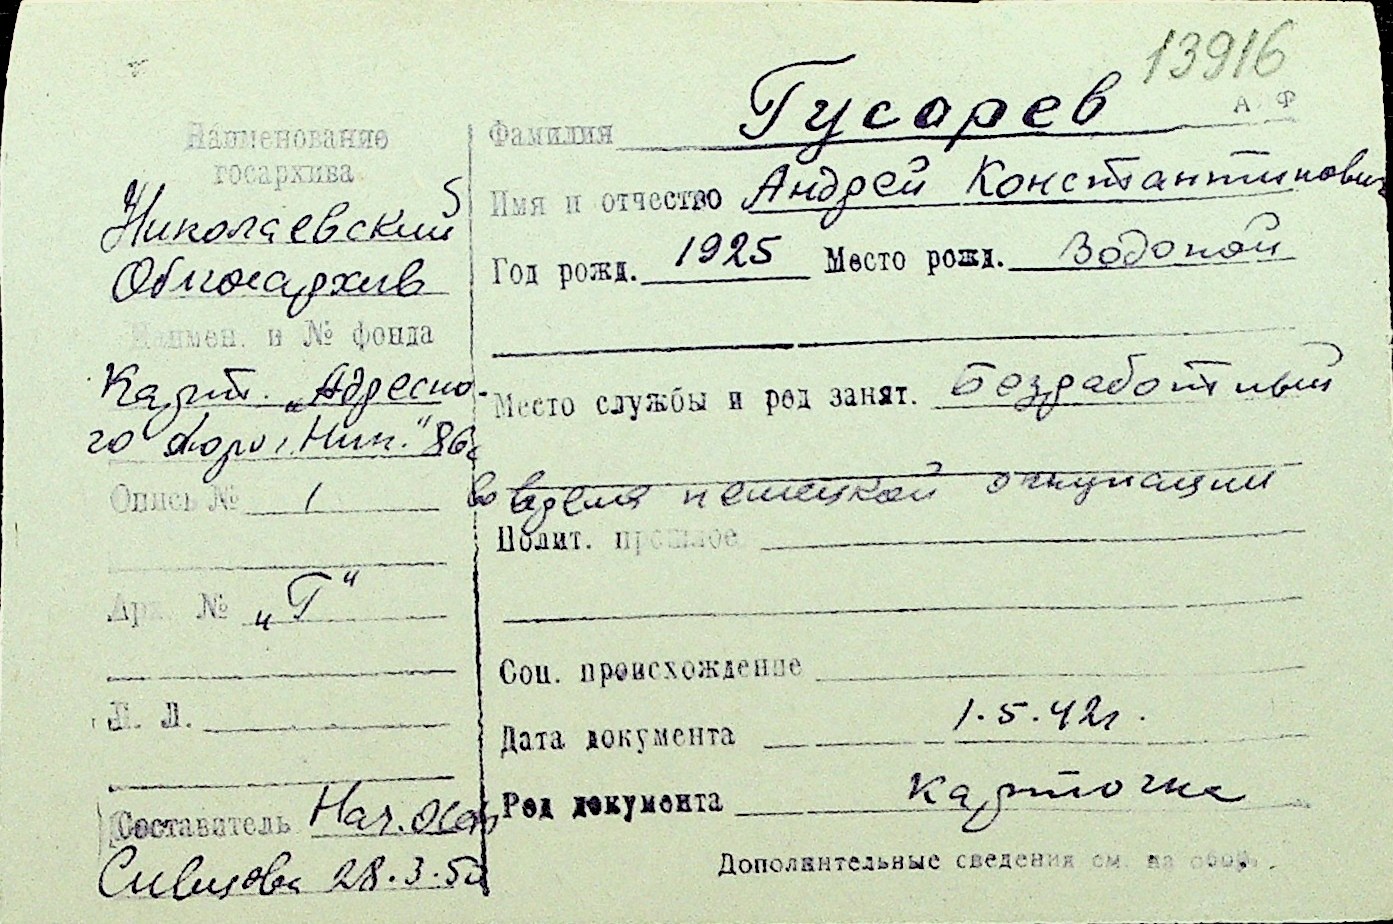 13916
А Ф
Наименование
госархива
Николаевский
Облгосархив
Наимен. и № фонда
Карт. „Адресно-
го бюро г. Ник." 86
Опись № 1
Арх. № „Г"
Л. Л.
Составитель Нач.
28.3.50
Фамилия Гусарев
Имя и отчество Андрей Константинович
Год рожд. 1925 Место рожд. Водопой
Место службы и род занят. Безработный
во время немецкой оккупации
Полит. прошлое
Соц. происхождение
Дата документа 1.5.42г.
Род документа карточка
Дополнительные сведения см. на обор.